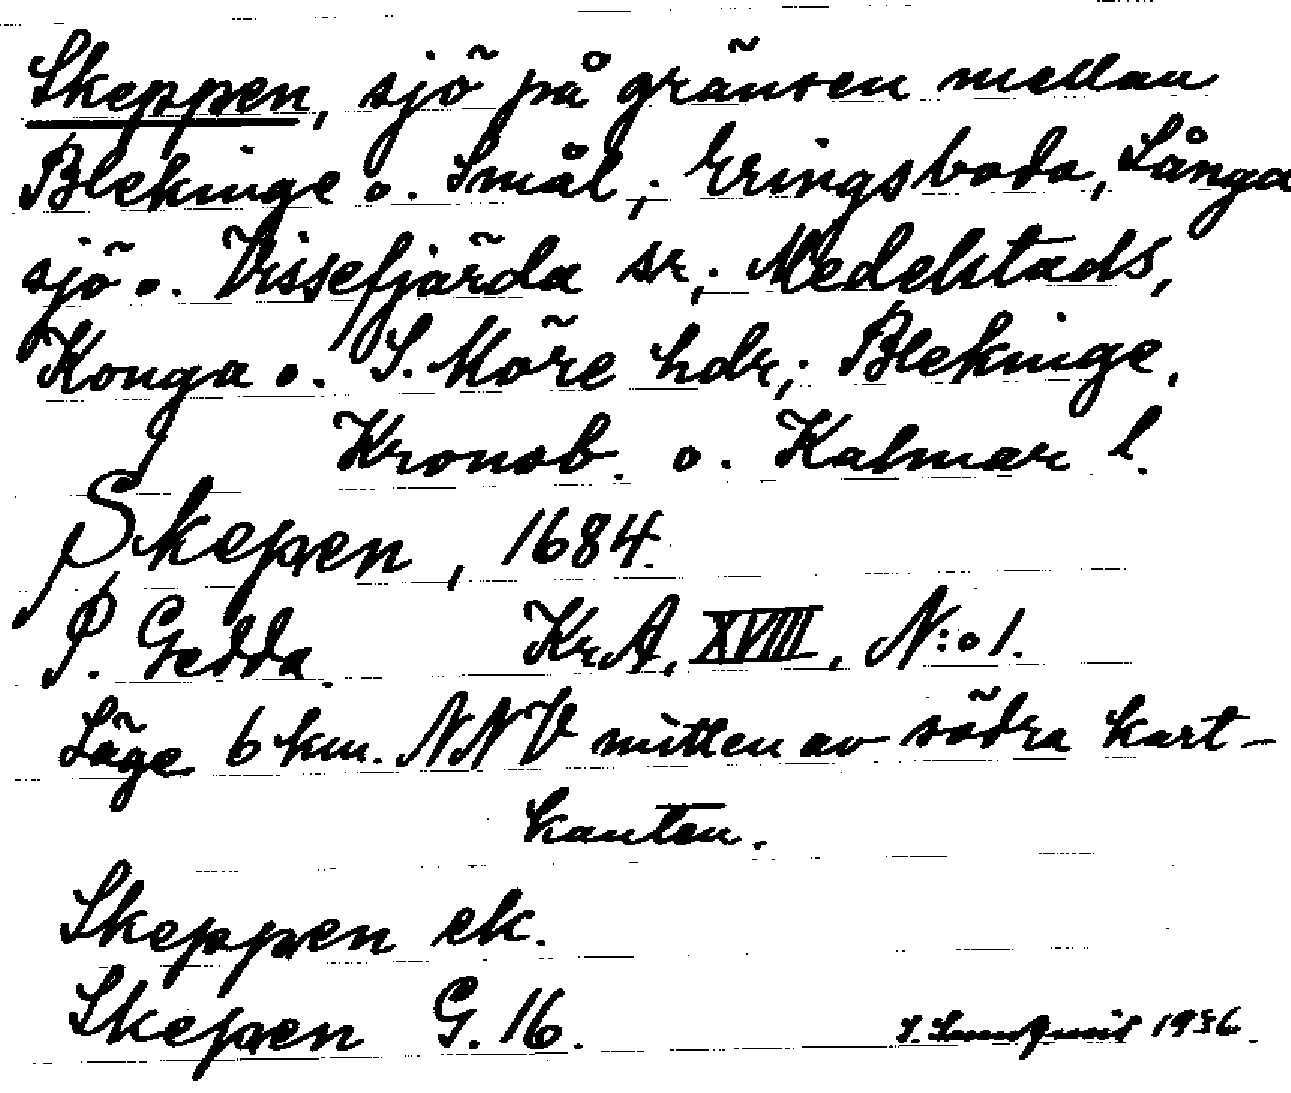 Skeppen, sjö på gränsen mellan
Blekinge o. Smål; Eringsboda, Långa
sjö o. Vissefjärda sr; Medelstads,
Konga o. S. Möre hdr; Blekinge,
Kronob. o. Kalmar l.
Skepen, 1684.
P. Gedda. KrA, XVIII, N:o 1.
Läge 6 km. NNV mitten av södra kart-
kanten.
Skeppen ek.
Skepen G. 16. 1936.